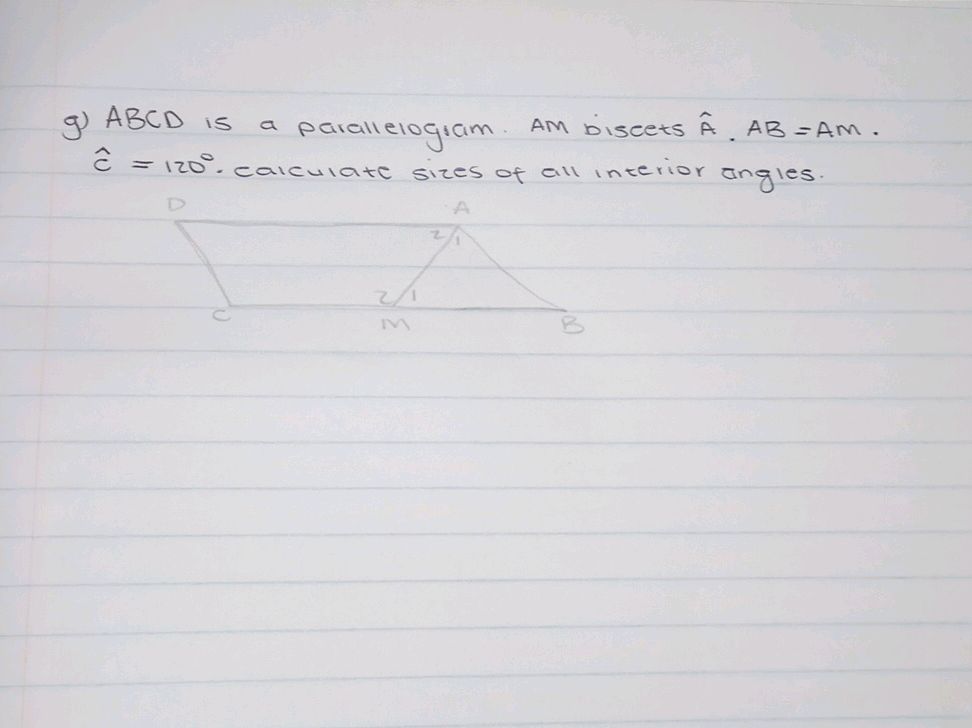 g) ABCD is a parallelogram. AM biscets Â. AB = AM.
Ĉ = 120°. calculate sizes of all interior angles.
D A
2 1
2 1
C M B